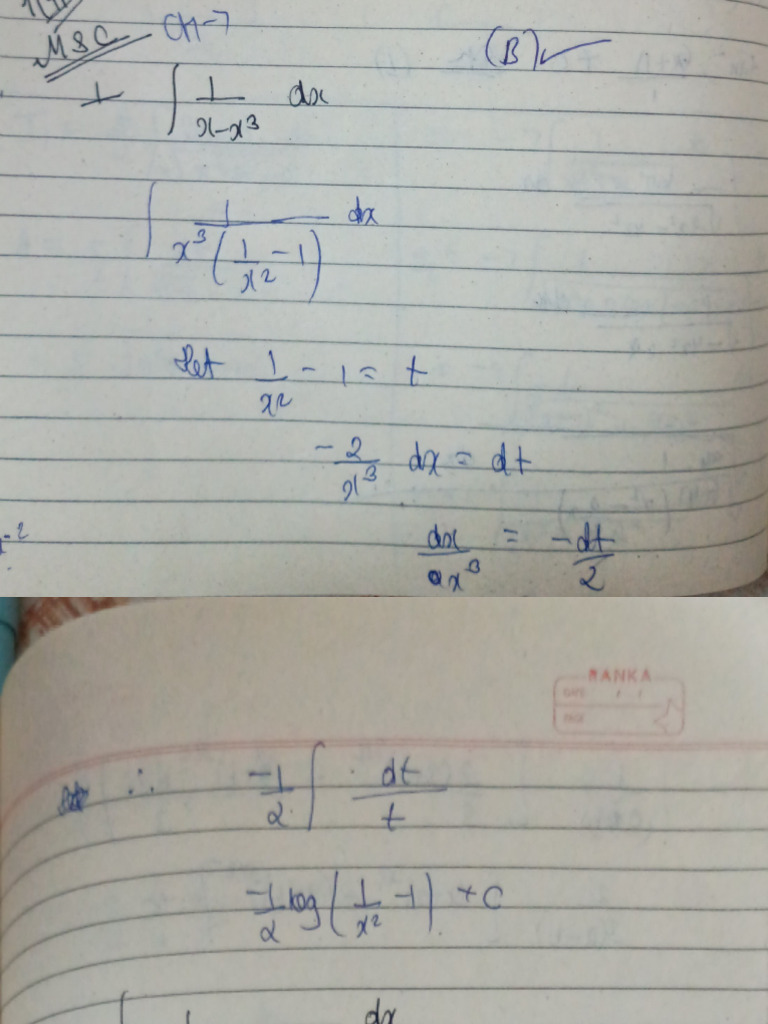 MSC CH-7
(B) ✓
1 ∫ 1/(x-x³) dx
∫ 1/(x³(1/x² - 1)) dx
Let 1/x² - 1 = t
-2/x³ dx = dt
dx/x³ = -dt/2
RANKA
DATE / /
PAGE
∴ -1/2 ∫ dt/t
-1/2 log(1/x² - 1) + C
∫ 1 dx